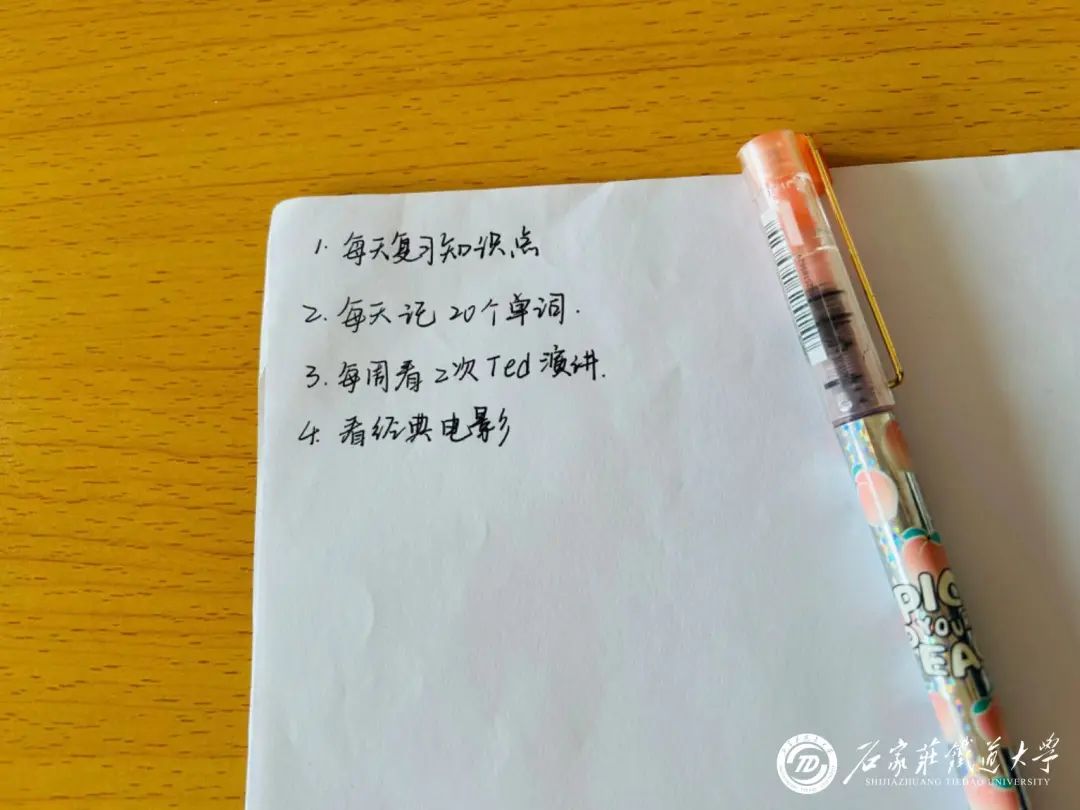 1. 每天复习知识点
2. 每天记20个单词.
3. 每周看2次Ted演讲.
4. 看经典电影
PIC
YOU
TEA
石家莊鐵道大學
SHIJIAZHUANG TIEDAO UNIVERSITY